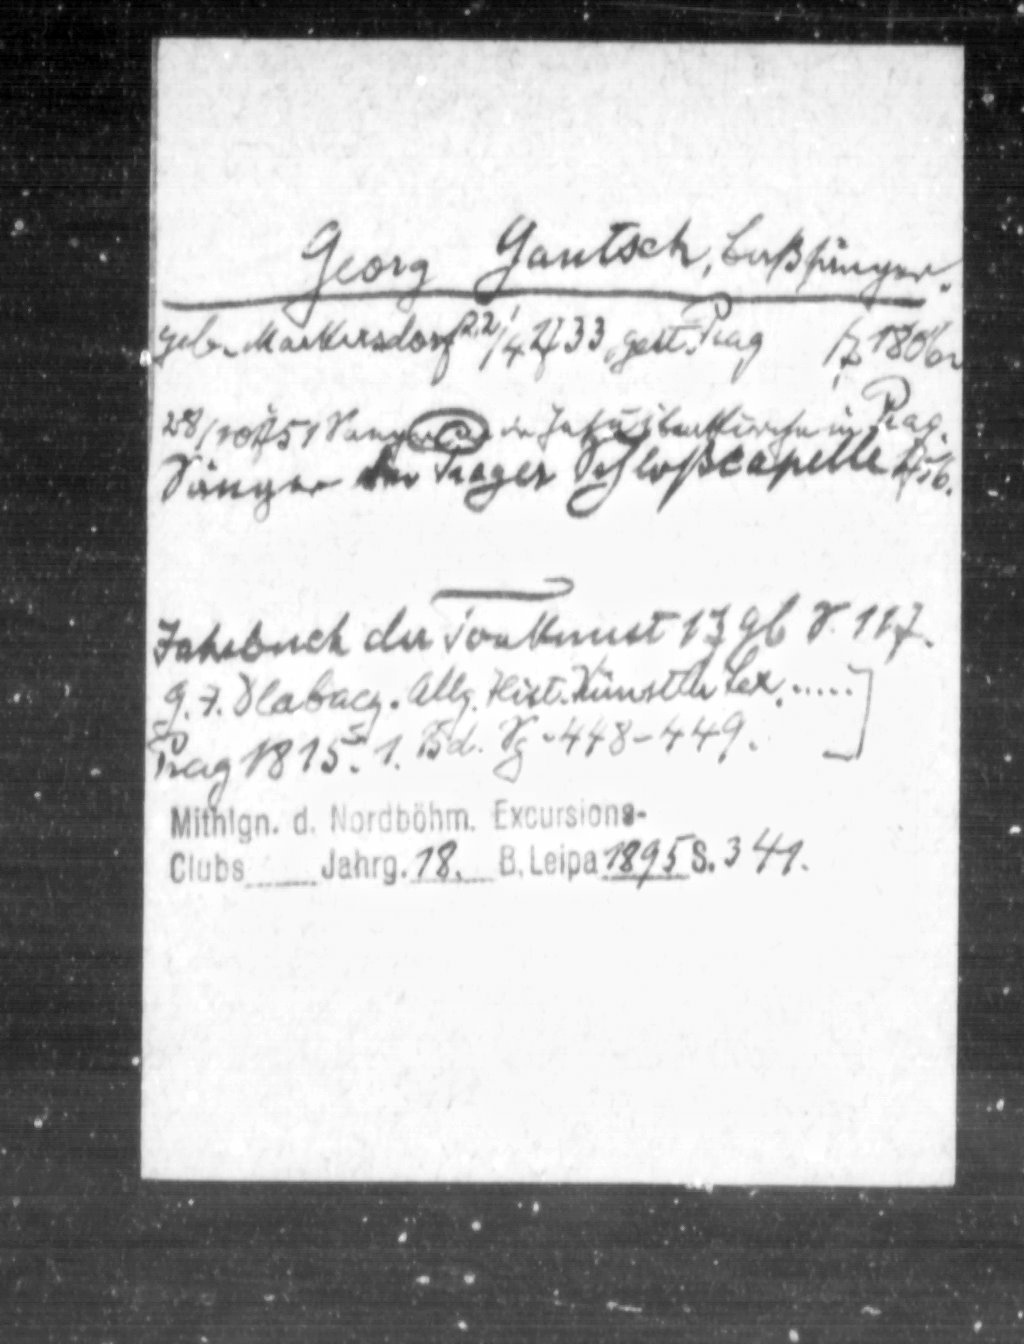 Georg Gautsch, Baßsänger.
geb. Markersdorf 22/4 1733, gest. Prag 1806
28/10 751 Sänger in Prag.
Sänger der Prager Schloßcapelle
Jahrbuch der Tonkunst 1796 S. 117.
G. J. Dlabacz. Allg. Hist. Künstler Lex. .....]
Prag 1815. 1. Bd. Sg. 448-449.
Mithlgn. d. Nordböhm. Excursions-
Clubs Jahrg. 18. B. Leipa 1895 S. 341.